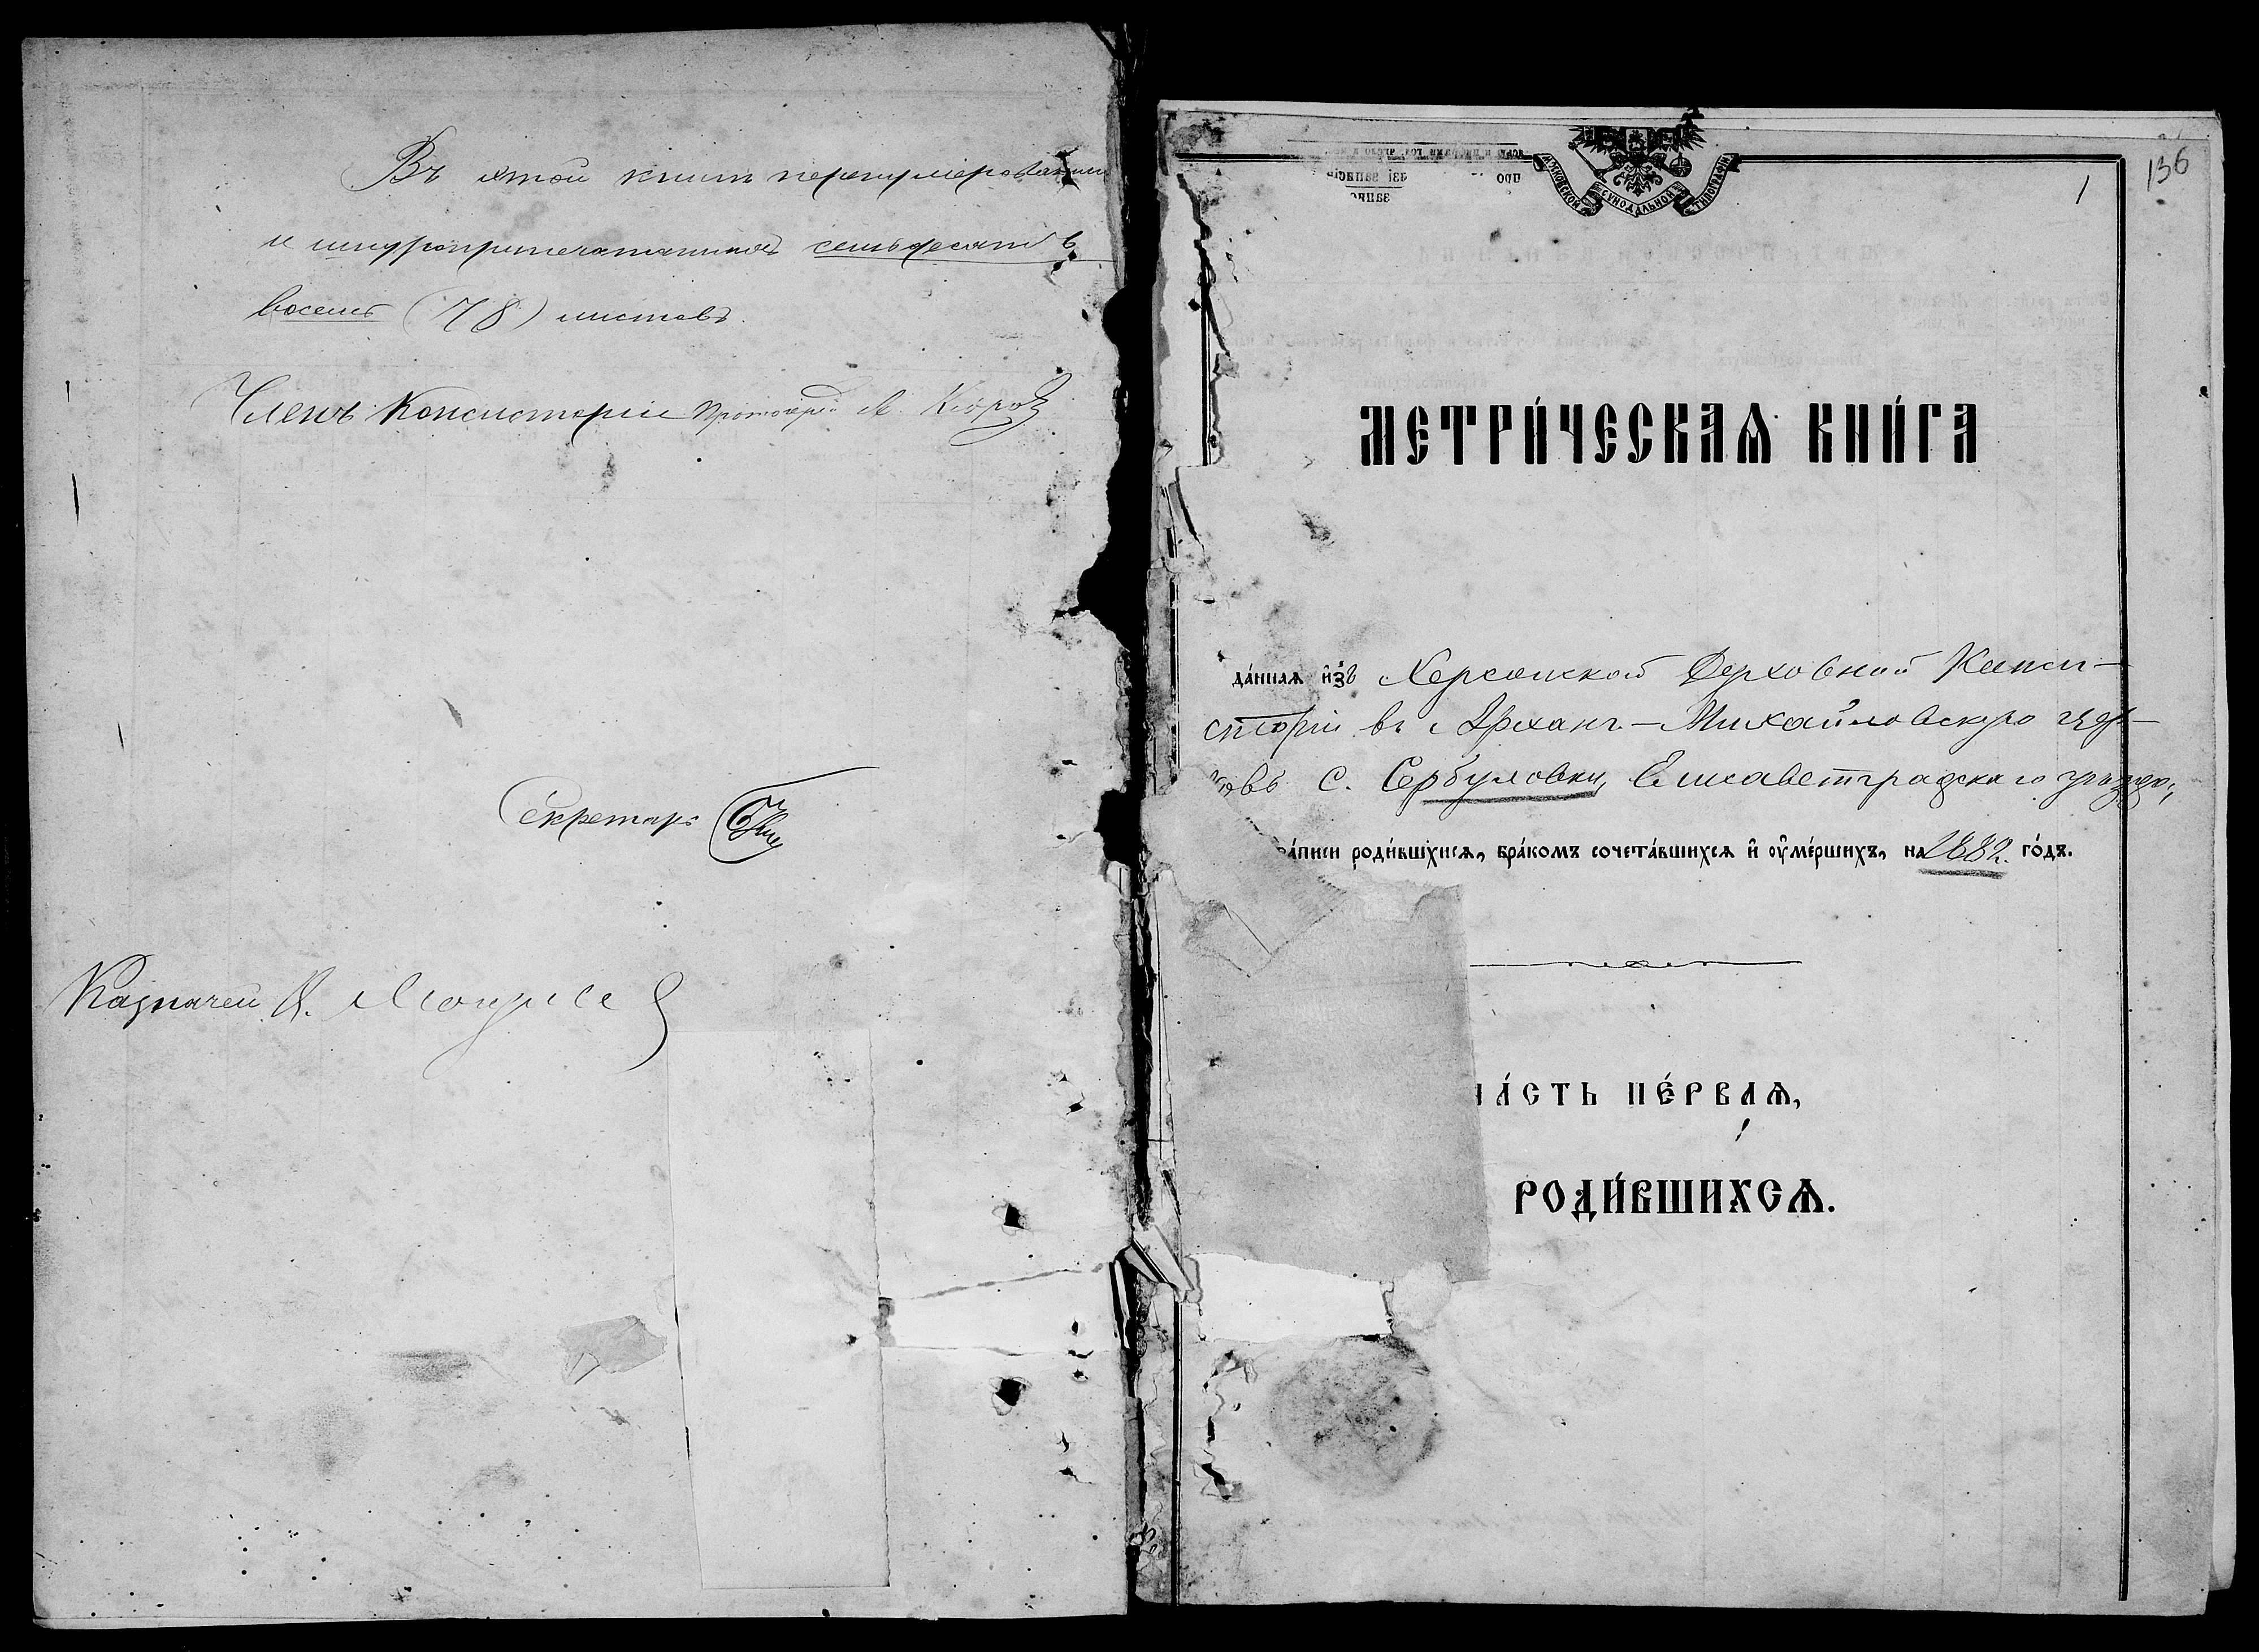 Въ этой книгѣ перенумерованныхъ
и шнуроприпечатанныхъ семьдесятъ
восемь (78) листовъ.
Членъ Консисторіи Протоіерей
Секретарь
Казначей
МОСКОВСКОЙ СѴНОДАЛЬНОЙ ТИПОГРАФІИ
1
136
МЕТРИ́ЧЕСКАѦ КНИ́ГА
да́ннаѧ и҆́зъ Херсонской Духовной Конси-
сторіи въ Архан.-Михайловскую цер-
ковь с. Сербуловки, Елисаветградскаго уѣзда,
за́писи роди́вшихсѧ, бра́комъ сочета́вшихсѧ и҆ ᲂу҆ме́ршихъ, на 1882. го́дъ.
ЧА́СТЬ ПЕ́РВАѦ,
РОДИ́ВШИХСѦ.